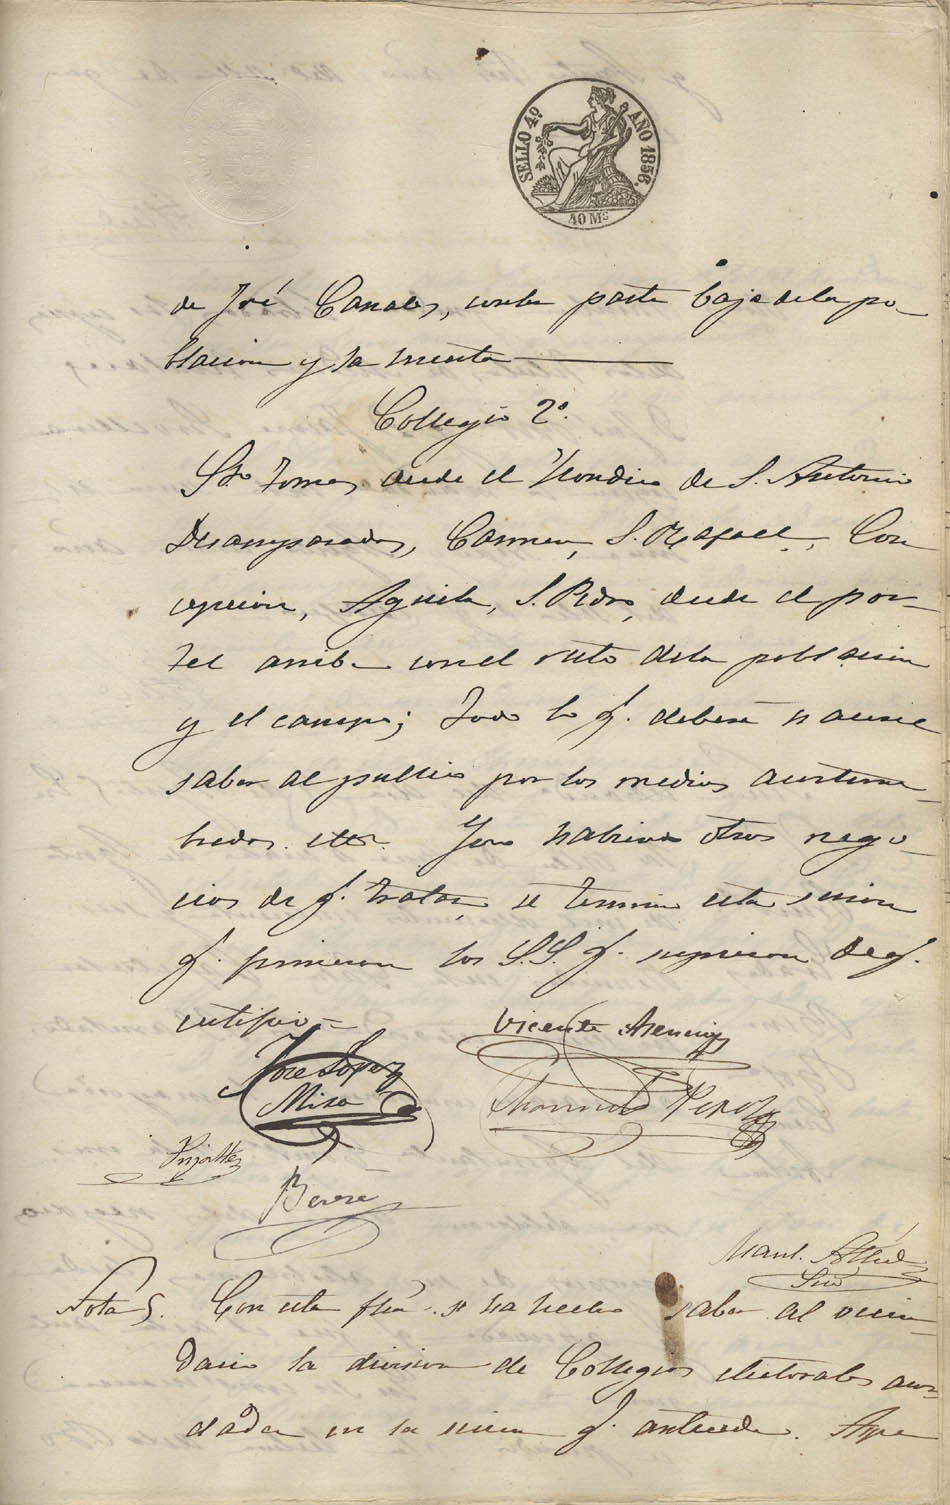 SELLO 4º AÑO 1856.
40 Ms
de José Canales, con la parte baja de la po-
blacion y la huerta
Collegio 2º.
Sto Tomas desde el Hondico de S. Antonio
Desamparados, Carmen, S. Rafael, Con
cepcion, Aguila, S. Pedro, desde el por-
tel arriba con el resto de la poblacion
y el campo; todo lo q. deberá hacerse
saber al publico por los medios acostum-
brados. etc. Y no habiendo otros nego-
cios de q. tratar, se termina esta sesion
q. firmaron los S.S. q. supieron de q.
certifico =
Vicente Asencio
Jose Lopez
Mira
Thomas Perez
Pujalte
Beresé
Manl.
Srio
Nota. Con esta fha. se ha hecho saber al vecin
dario la division de Collegios electorales acor
dada en la sesion q. antecede. Aspe